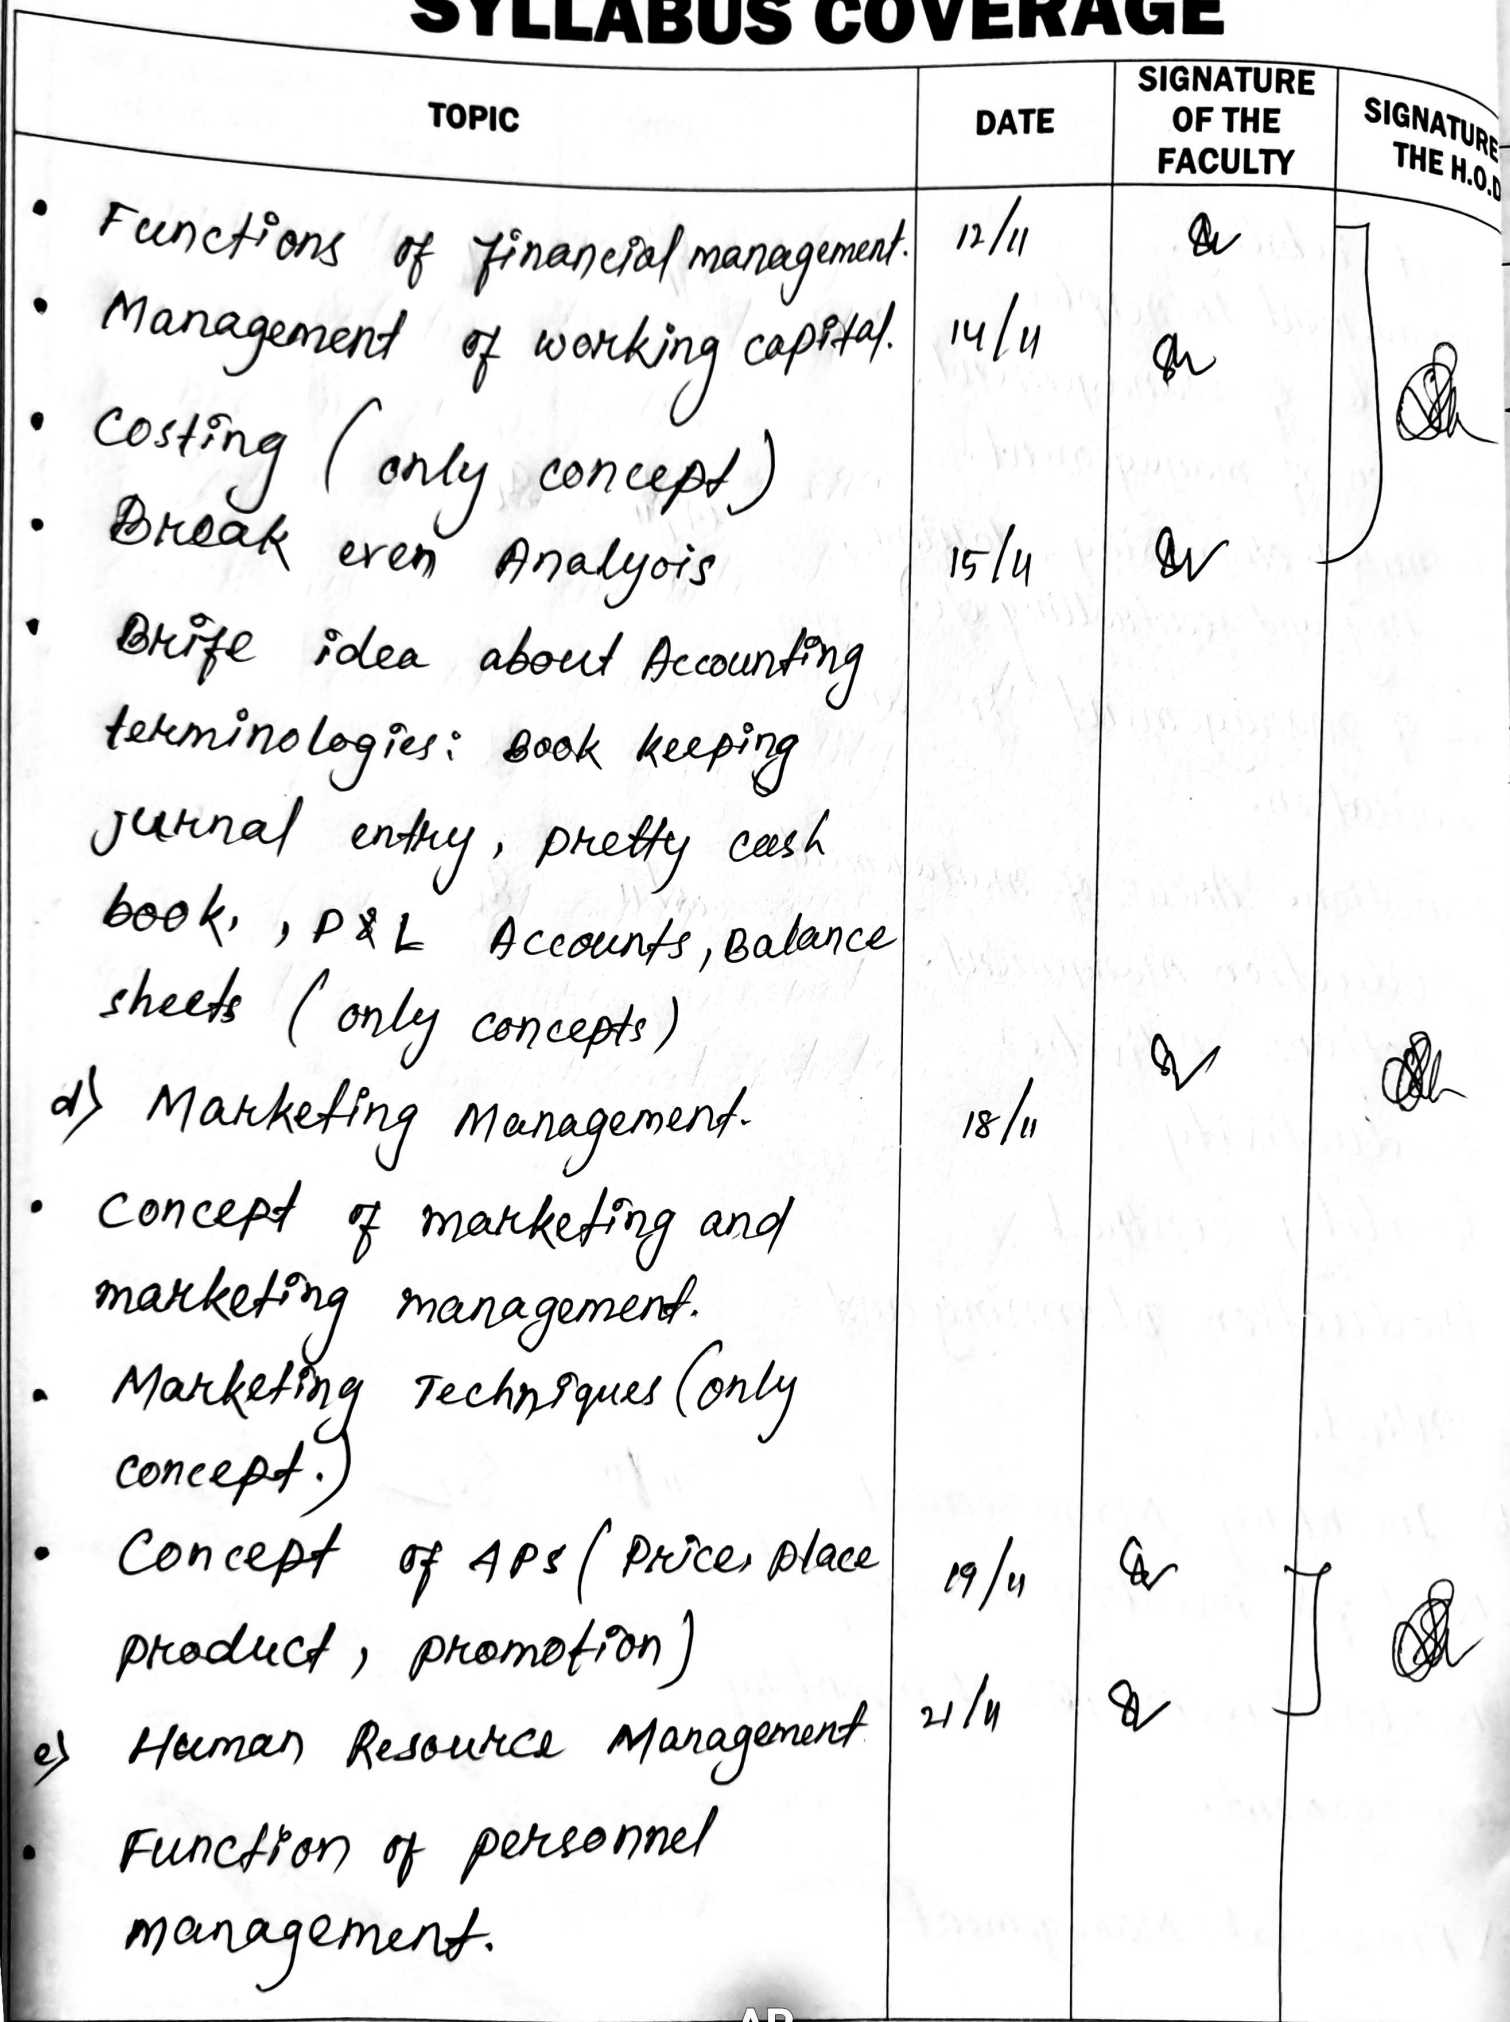 SYLLABUS COVERAGE
TOPIC
DATE
SIGNATURE
OF THE
FACULTY
SIGNATURE
THE H.O.D
• Functions of financial management. 12/11
• Management of working capital. 14/11
• Costing (only concept)
• Break even Analysis 15/11
• Brife idea about Accounting
terminologies: Book keeping
jurnal entry, pretty cash
book, , P&L Accounts, Balance
sheets (only concepts)
d) Marketing Management. 18/11
• Concept of marketing and
marketing management.
• Marketing Techniques (only
concept.)
• Concept of 4PS (Price, place 19/11
product, promotion)
e) Human Resource Management 21/11
• Function of personnel
management.